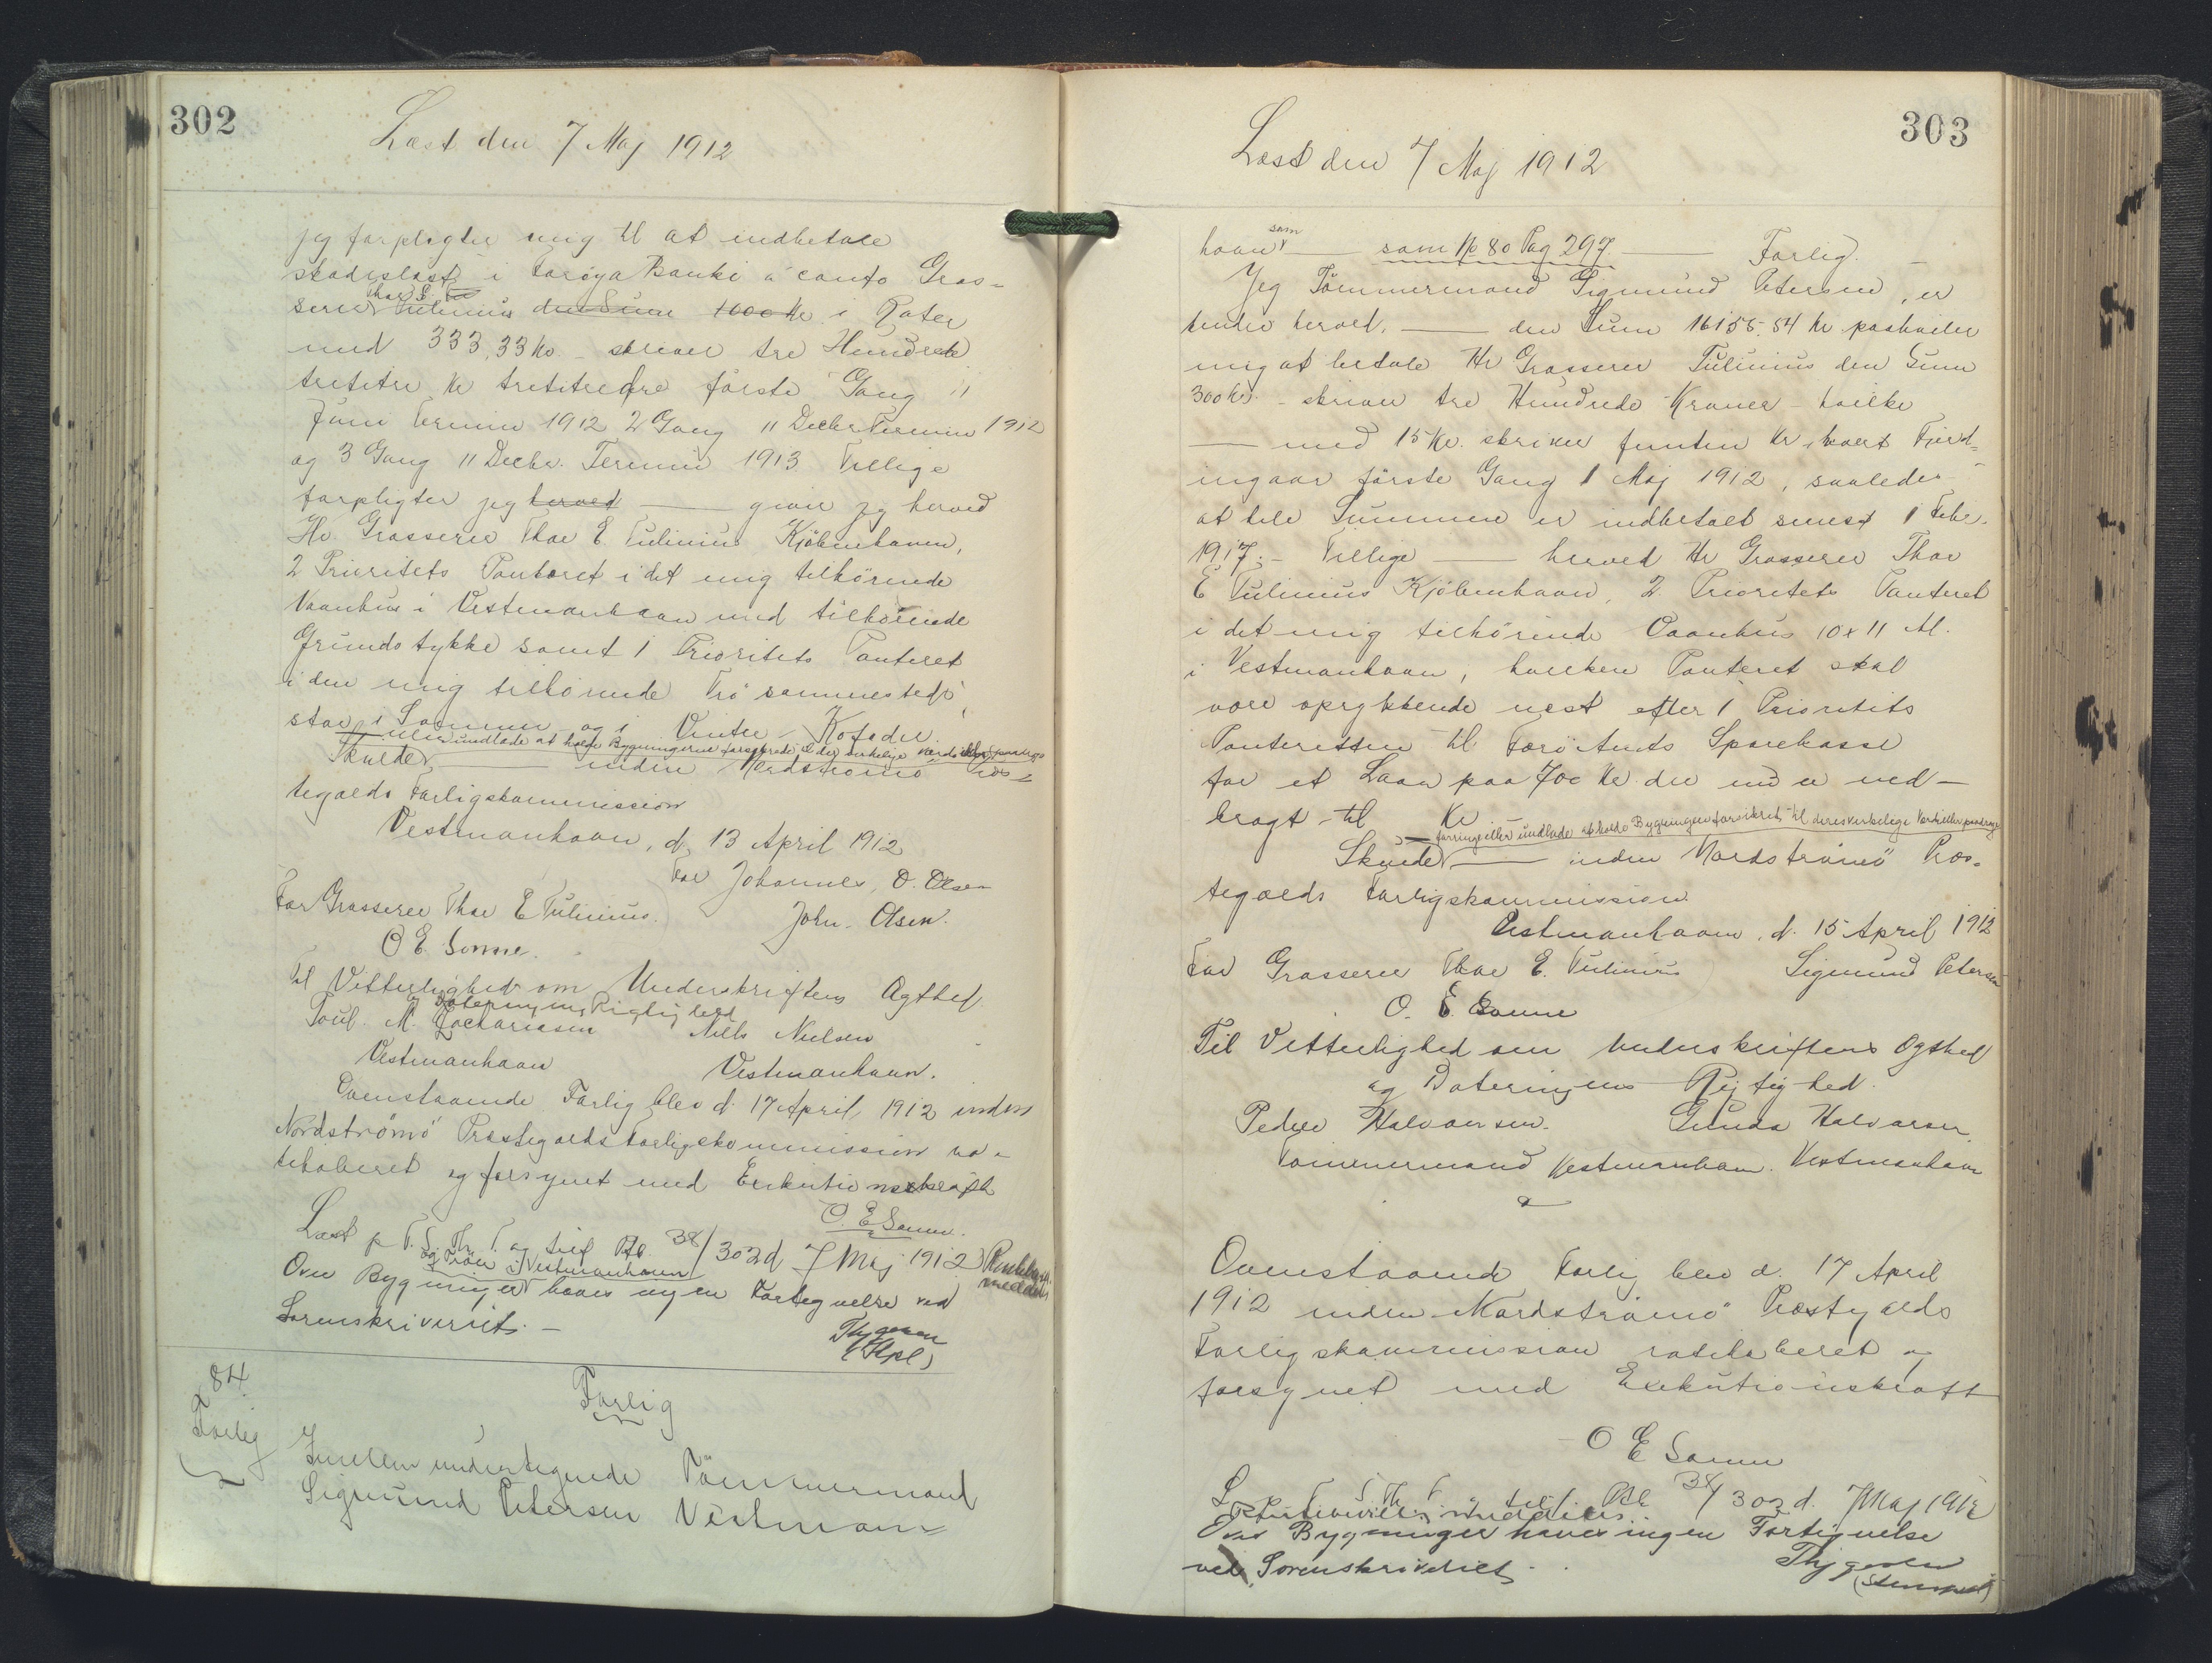 302
Læst den 7 Maj 1912
jeg forpligter mig til at indbetale
skadesløst i Færøya Banki a conto Gros-
serer Thor E. Tulinius den Sum 1000 Kr i Rater
med 333,33 Kr. skriver tre Hundrede
tretitre Kr tretitreøre første Gang 11
Juni Termin 1912 2 Gang 11 Decbr Termin 1912
og 3 Gang 11 Decbr. Termin 1913 Tillige
forpligter jeg herved — giver jeg herved
Hr. Grosserer Thor E Tulinius Kjöbenhavn,
2 Prioritets Panteret i det mig tilhörende
Vaanhus i Vestmanhavn med tilhörende
Grundstykke samt 1 Prioritets Panteret
i den mig tilhörende Trö sammesteds,
stor i Sommer og i Vinter Kofoder.
eller undlade at holde Bygningerne forsikrede til der virkelige Værdi
Skulde — inden Nordströmö Præs-
tegælds Forligskommission
Vestmanhavn, d. 13 April 1912
For Johannes, D. Olsen
For Grosserer Thor E Tulinius. John. Olsen.
O E. Sonne.
Til Vitterlighed om Underskriftens Ægthed
og Dateringens Rigtighed
Poul. M. Zachariasen Niels Nielsen
Vestmanhavn Vestmanhavn.
Ovenstaaende Forlig blev d. 17 April 1912 inden
Nordströmö Præstegælds Forligskommission ra-
tihaberet og forsynet med Exekutionskraft
O. E Sonne.
Læst p F. S. Th. T. og tilf Pb. 38/302 d 7 Maj 1912
og Tröer i Vestmanhavn
Over Bygninger haves ingen Fortegnelse ved
Sorenskriveriet. —
Thygesen
(Stpl)
84
Forlig
Forlig
Imellem undertegnede Tömmermand
Sigmund Petersen Vestman-
303
Læst den 7 Maj 1912
havn som — som No 80 Pag 297 — Forlig. —
Jeg Tömmermand Sigmund Petersen, er
kender herved, — den Sum 16155.54 Kr paahviler
mig at betale Hr Grosserer Tulinius den Sum
300 Kr. - skriver tre Hundrede Kroner - hvilke
— med 15 Kr. skriver femten Kr. hvert Fjerd-
ingaar første Gang 1 Maj 1912, saaledes
at hele Summen er indbetalt senest 1 Febr.
1917. - Tillige — herved Hr Grosserer Thor
E Tulinius Kjöbenhavn, 2 Prioritets Panteret
i det mig tilhörende Vaanhus 10 x 11 Al.
i Vestmanhavn, hvilken Panteret skal
være oprykkende næst efter 1 Prioritets
Panteretten til Færö Amts Sparekasse
for et Laan paa 700 Kr. der nu er ned-
bragt til Kr
forringe eller undlade at holde Bygningen forsikret til deres virkelige Værdi eller paadrage
Skulde — inden Nordströmö Præs-
tegælds Forligskommission.
Vestmanhavn, d. 15 April 1912
For Grosserer Thor E. Tulinius Sigmund Petersen
O. E. Sonne
Til Vitterlighed om Underskriftens Ægthed
og Dateringens Rigtighed.
Peder Halvorsen. Gunda Halvorsen
Tömmermand Vestmanhavn. Vestmanhavn
Ovenstaaende Forlig blev d. 17 April
1912 inden Nordströmö Præstegælds
Forligskommission ratihaberet og
forsynet med Exekutionskraft
O E Sonne
L. p F S Th T tilf. Pb 38/302 d. 7 Maj 1912
Over Bygninger haves ingen Fortegnelse
ved Sorenskriveriet.
Thygesen
(Stempel)